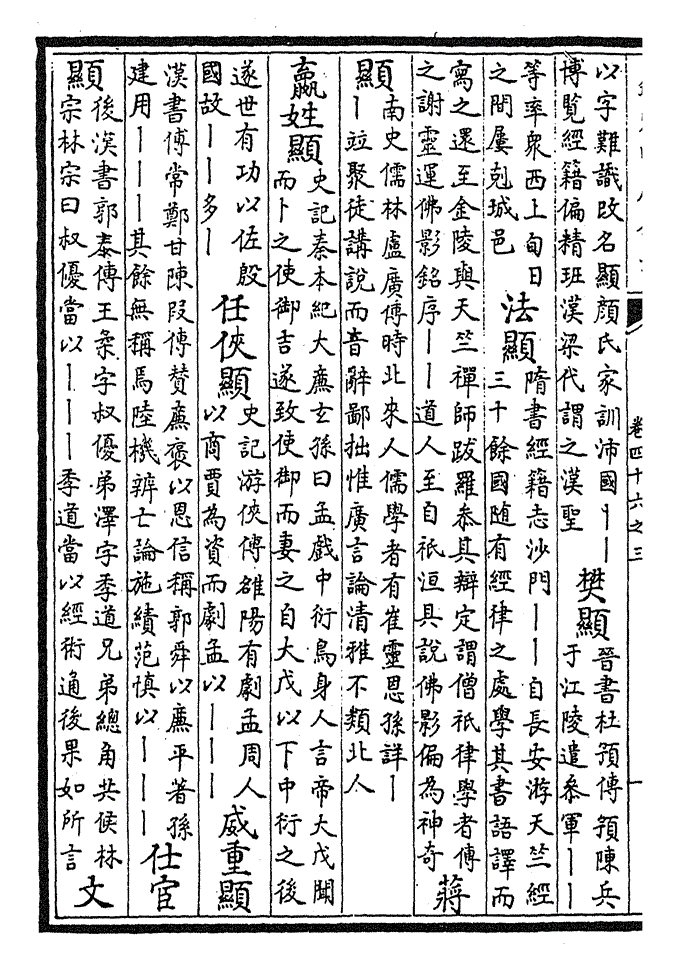 卷四十六之三
一
以字難識改名顯顏氏家訓沛國丨丨
博覽經籍偏精班漢梁代謂之漢聖
樊顯
晉書杜預傳預陳兵
于江陵遣參軍丨丨
等率衆西上旬日
之間屢剋城邑
法顯
隋書經籍志沙門丨丨自長安游天竺經
三十餘國随有經律之處學其書語譯而
寫之還至金陵與天竺禪師跋羅參其辯定謂僧祇律學者傳
之謝靈運佛影銘序丨丨道人至自祇洹具說佛影偏為神奇
蔣
顯
南史儒林盧廣傳時北來人儒學者有崔靈恩孫詳丨
丨竝聚徒講說而音辭鄙拙惟廣言論清雅不類北人
嬴姓顯
史記秦本紀大廉玄孫曰孟戲中衍鳥身人言帝大戊聞
而卜之使御吉遂致使御而妻之自大戊以下中衍之後
遂世有功以佐殷
國故丨丨多丨
任俠顯
史記游俠傳雒陽有劇孟周人
以商賈為資而劇孟以丨丨丨
威重顯
漢書傅常鄭甘陳段傳贊廉褒以恩信稱郭舜以廉平著孫
建用丨丨丨其餘無稱焉陸機辨亡論施績范慎以丨丨丨
仕宦
顯
後漢書郭泰傳王柔字叔優弟澤字季道兄弟總角共候林
宗林宗曰叔優當以丨丨丨季道當以經術通後果如所言
文